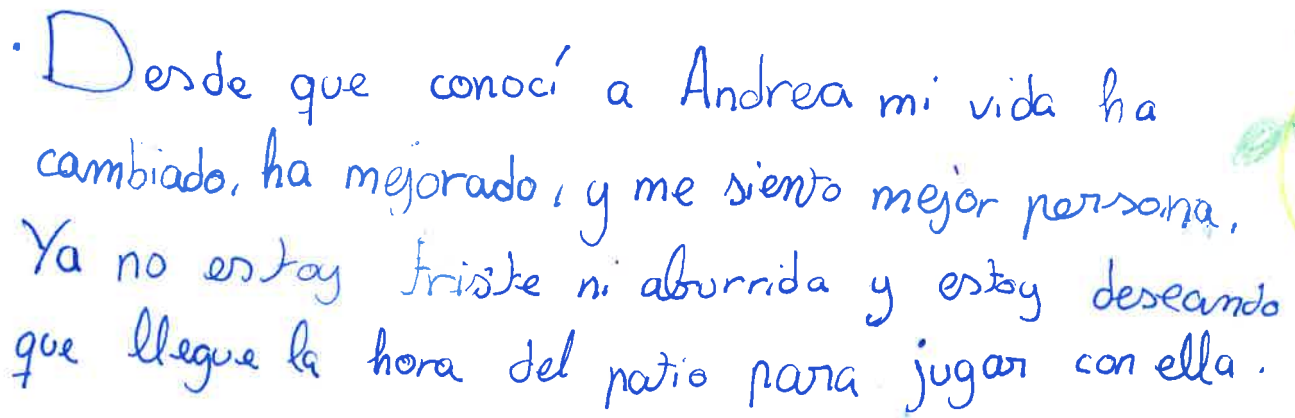 · Desde que conocí a Andrea mi vida ha
cambiado, ha mejorado, y me siento mejor persona.
Ya no estoy triste ni aburrida y estoy deseando
que llegue la hora del patio para jugar con ella.